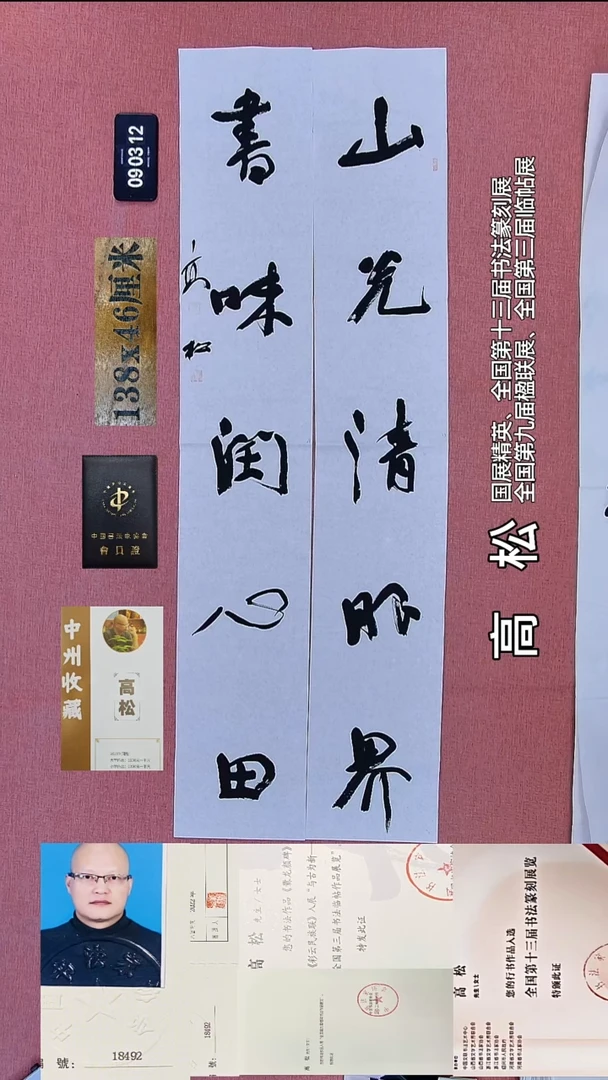 山光清眼界
書味潤心田
高松
090312
138x46厘米
会员证
中州收藏
高松
高 松
国展精英、全国第十三届书法篆刻展
全国第九届楹联展、全国第三届临帖展
18492
2022年
18492
高 松 先生/女士
您的书法作品
全国第三届书法临帖作品展览
特发此证
高 松
先生\女士
您的行书作品入选
全国第十三届书法篆刻展览
特颁此证